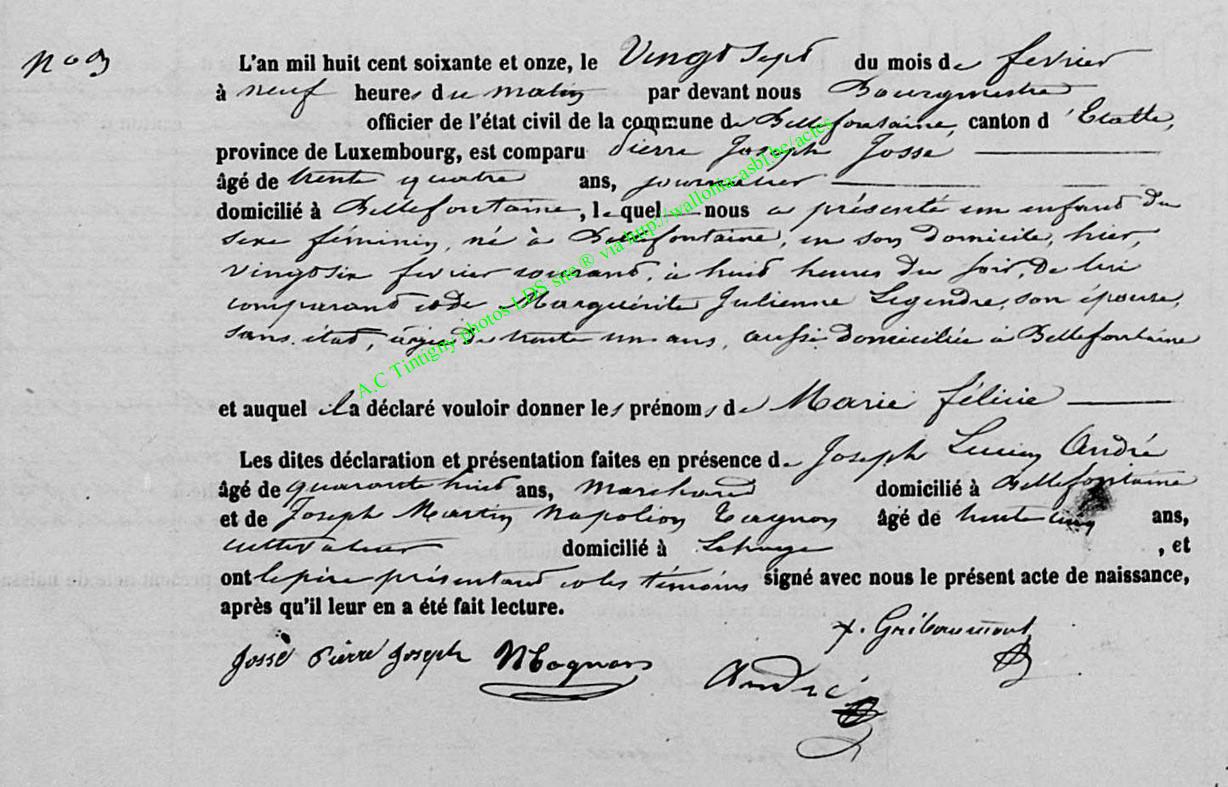 N° 3
L'an mil huit cent soixante et onze, le Vingt Sept du mois de fevrier
à neuf heures du matin par devant nous Bourgmestre
officier de l'état civil de la commune de Bellefontaine, canton d'Etalle,
province de Luxembourg, est comparu Pierre Joseph Josse
âgé de trente quatre ans, journalier
domicilié à Bellefontaine, lequel nous a présenté un enfant du
sexe féminin, né à Bellefontaine, en son domicile, hier,
vingt six fevrier courant, à huit heures du soir, de lui
comparant et de Marguérite Julienne Legendre, son épouse,
sans état, âgée de trente un ans, aussi domiciliée à Bellefontaine
et auquel il a déclaré vouloir donner les prénoms de Marie félicie
Les dites déclaration et présentation faites en présence de Joseph Lucien André
âgé de quarante huit ans, marchand domicilié à Bellefontaine
et de Joseph Martin Napoléon Tagnon âgé de trente cinq ans,
cultivateur domicilié à Lahage, et
ont le père présentant et les témoins signé avec nous le présent acte de naissance,
après qu'il leur en a été fait lecture.
Josse Pierre Joseph NTagnon André J. Gribaumont
A.C Tintigny photos LDS site ® via http://wallonia-asbl.be/actes